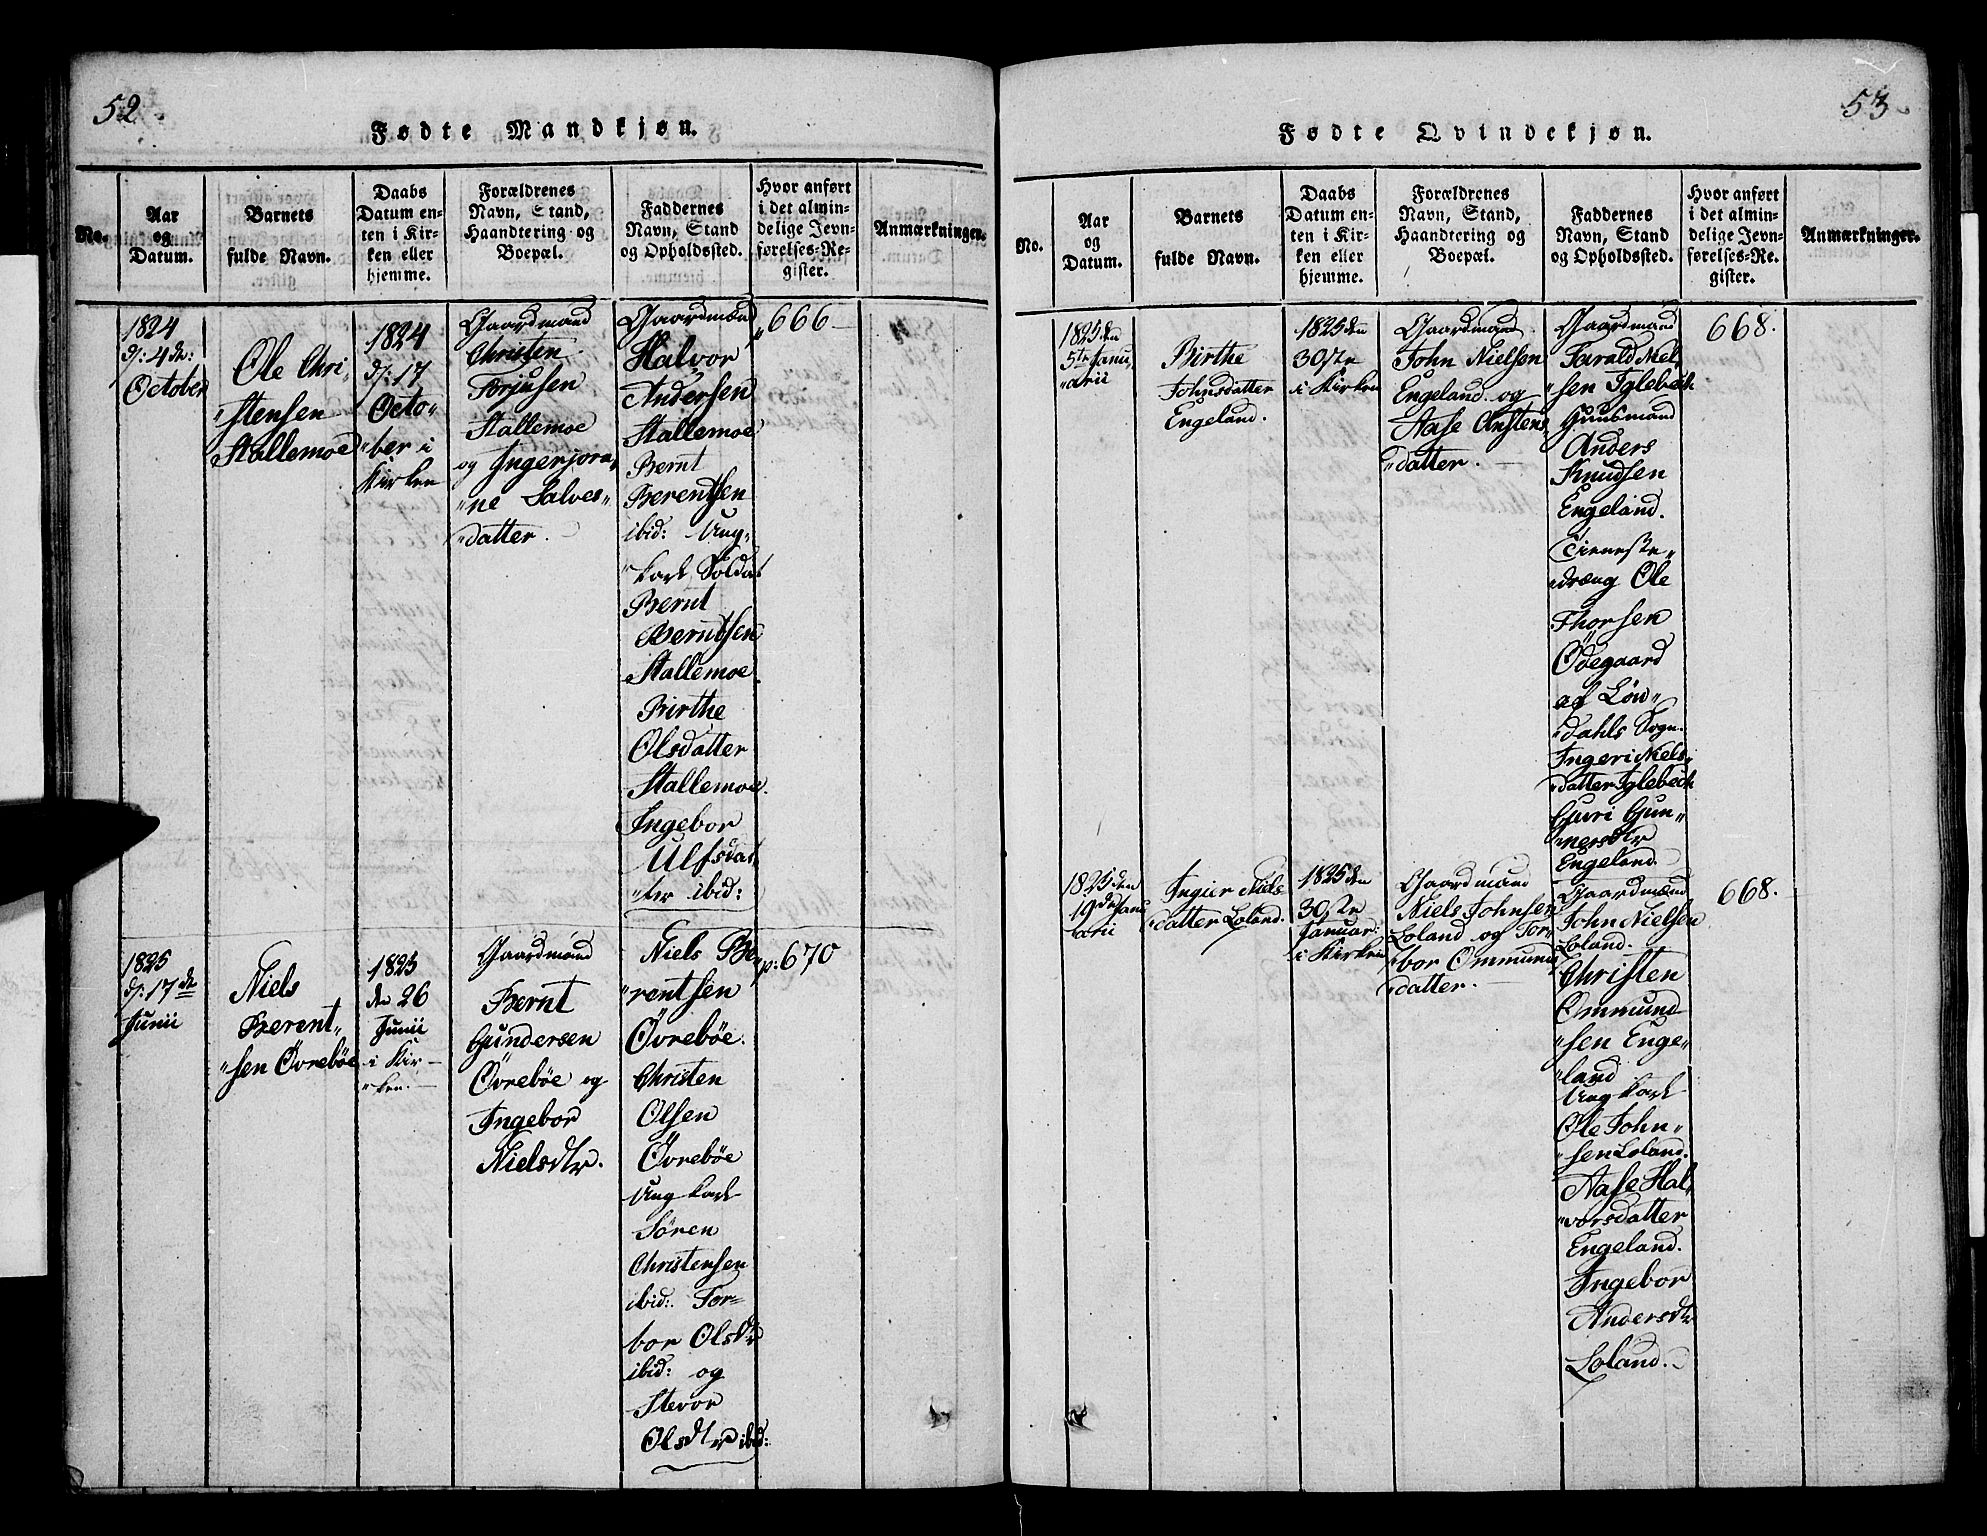 52.
Fødte Mandkjøn.
No.
Aar
og
Datum.
Barnets
fulde Navn.
Daabs
Datum en-
ten i Kir-
ken eller
hjemme.
Forældrenes
Navn, Stand,
Haandtering og
Boepæl.
Faddernes
Navn, Stand
og Opholdssted.
Hvor anført
i det almin-
delige Jevn-
førelses-Re-
gister.
Anmærkninger.
1824
d: 4de:
October
Ole Chri-
stensen
Stallemoe
1824
d: 17
Octo-
ber i
Kirken
Gaardmand
Christen
Torjusen
Stallemoe
og Ingerjora
ne Salves-
datter.
Gaardmænd
Halvor
Andersen
Stallemoe
Bernt
Berentsen
ibid: Ung-
karl Soldat
Bernt
Berntsen
Stallemoe
Birthe
Olsdatter
Stallemoe.
Ingebor
Ulfsdat
ter ibid:
666
1825
d: 17de
Junii
Niels
Berent-
sen Övreböe
1825
den 26
Junii
i Kir-
ken.
Gaardmand
Bernt
Gundersen
Övreböe og
Ingebor
Nielsdtr.
Niels Be-
rentsen
Övreböe.
Christen
Olsen
Övreböe
Ung karl
Sören
Christensen
ibid: Tor-
bor Olsdtr
ibid: og
Stevor
Olsdtr ibid:
p: 670
53
Fødte Qvindekjøn.
No.
Aar
og
Datum.
Barnets
fulde Navn.
Daabs
Datum en-
ten i Kir-
ken eller
hjemme.
Forældrenes
Navn, Stand,
Haandtering og
Boepæl.
Faddernes
Navn, Stand
og Opholdssted.
Hvor anført
i det almin-
delige Jevn-
førelses-Re-
gister.
Anmærkninger.
1825 den
5te Janu
arii
Birthe
Johnsdatter
Engeland.
1825 den
30ste
i Kirken
Gaardmand
John Nielsen
Engeland og
Aase Anstens
datter.
Gaardmand
Tarald Niel
sen Iglebeck
Huusmand
Anders
Knudsen
Engeland.
Tieneste-
dræng Ole
Thorsen
Ödegaard
af Löu-
dahls Sogn.
Ingeri Niels
datter Iglebeck
Guri Gun-
nersdtr
Engeland.
668.
1825 den
19de Janu
arii
Ingier Niels
datter Loland.
1825 den
30ste
Januar.
i Kirken
Gaardmand
Niels Johnsen
Loland og Tor-
bor Ommunds
datter.
Gaardmænd
John Nielsen
Loland.
Christen
Ommund
sen Enge-
land
Ung karl
Ole John-
sen Loland.
Aase Hal
vorsdatter
Engeland.
Ingebor
Andersdtr
Loland.
668.